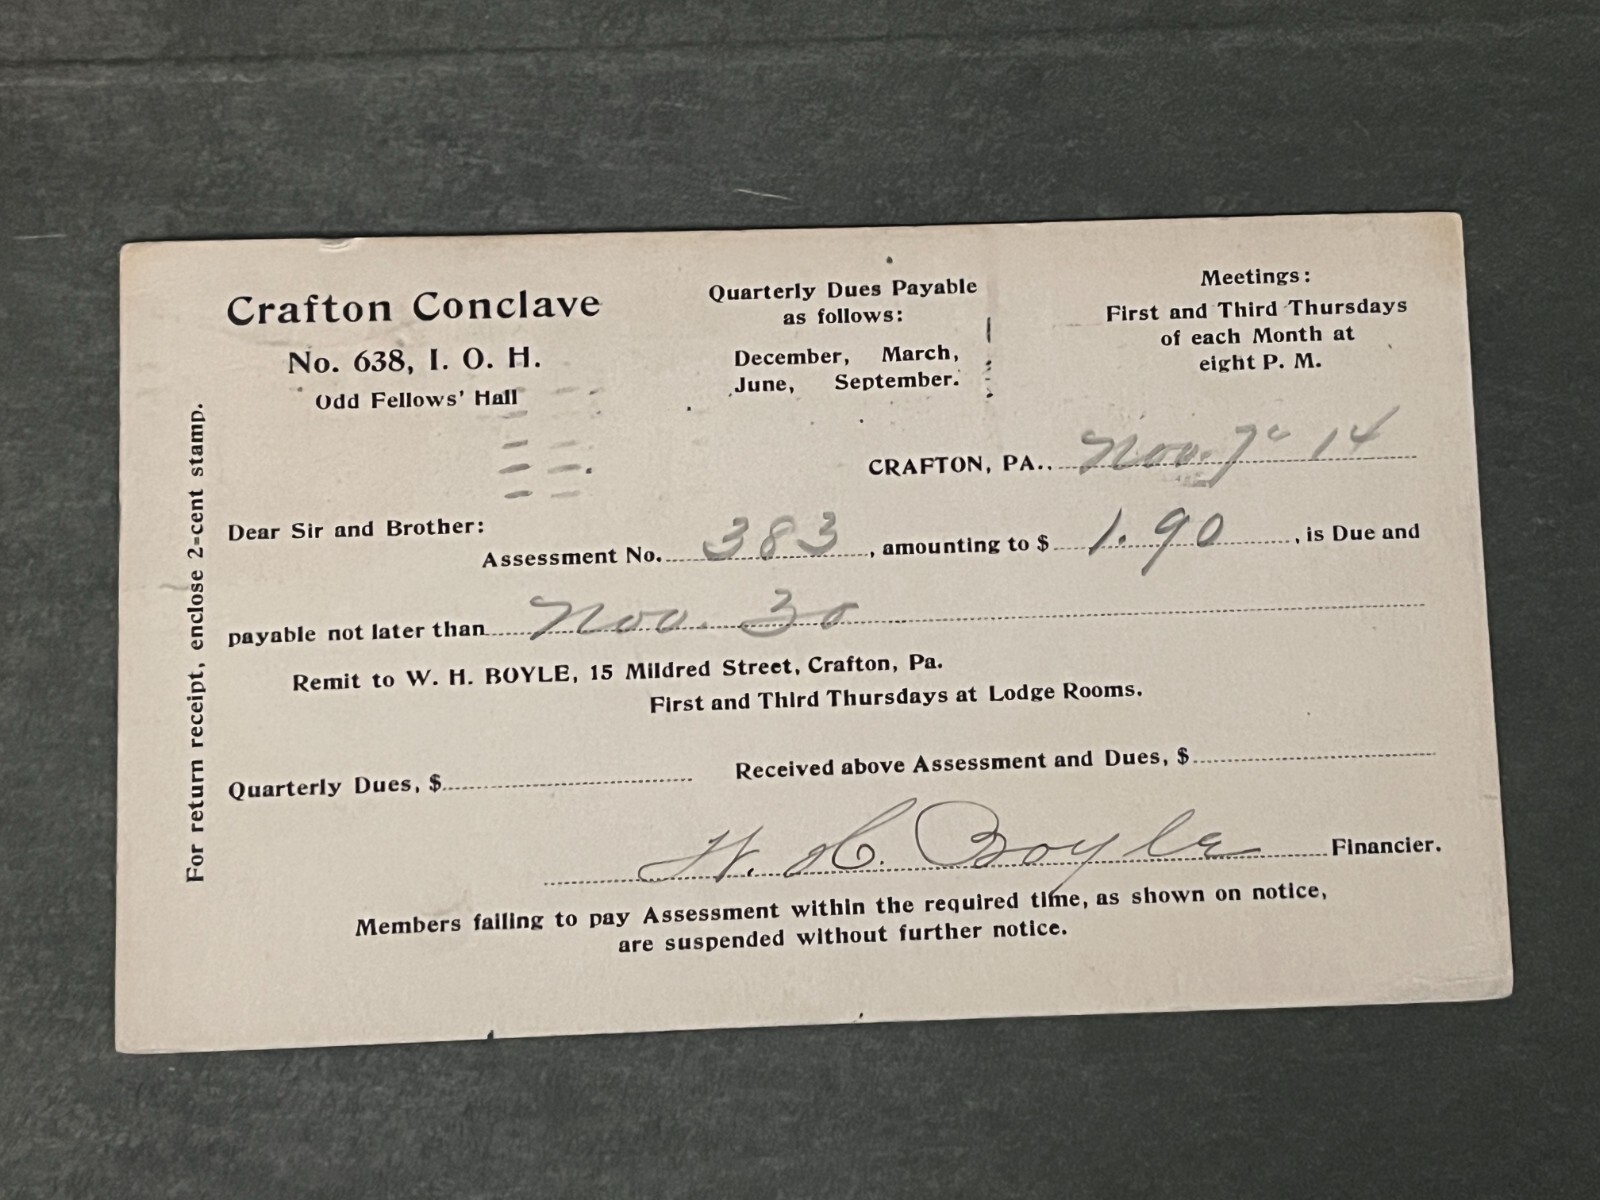 Crafton Conclave
No. 638, I. O. H.
Odd Fellows' Hall
Quarterly Dues Payable
as follows:
December, March,
June, September.
Meetings:
First and Third Thursdays
of each Month at
eight P. M.
CRAFTON, PA., Nov. 7 14
Dear Sir and Brother:
Assessment No. 383, amounting to $ 1.90, is Due and
payable not later than Nov. 30
Remit to W. H. BOYLE, 15 Mildred Street, Crafton, Pa.
First and Third Thursdays at Lodge Rooms.
Quarterly Dues, $
Received above Assessment and Dues, $
W. H. Boyle Financier.
Members failing to pay Assessment within the required time, as shown on notice,
are suspended without further notice.
For return receipt, enclose 2=cent stamp.